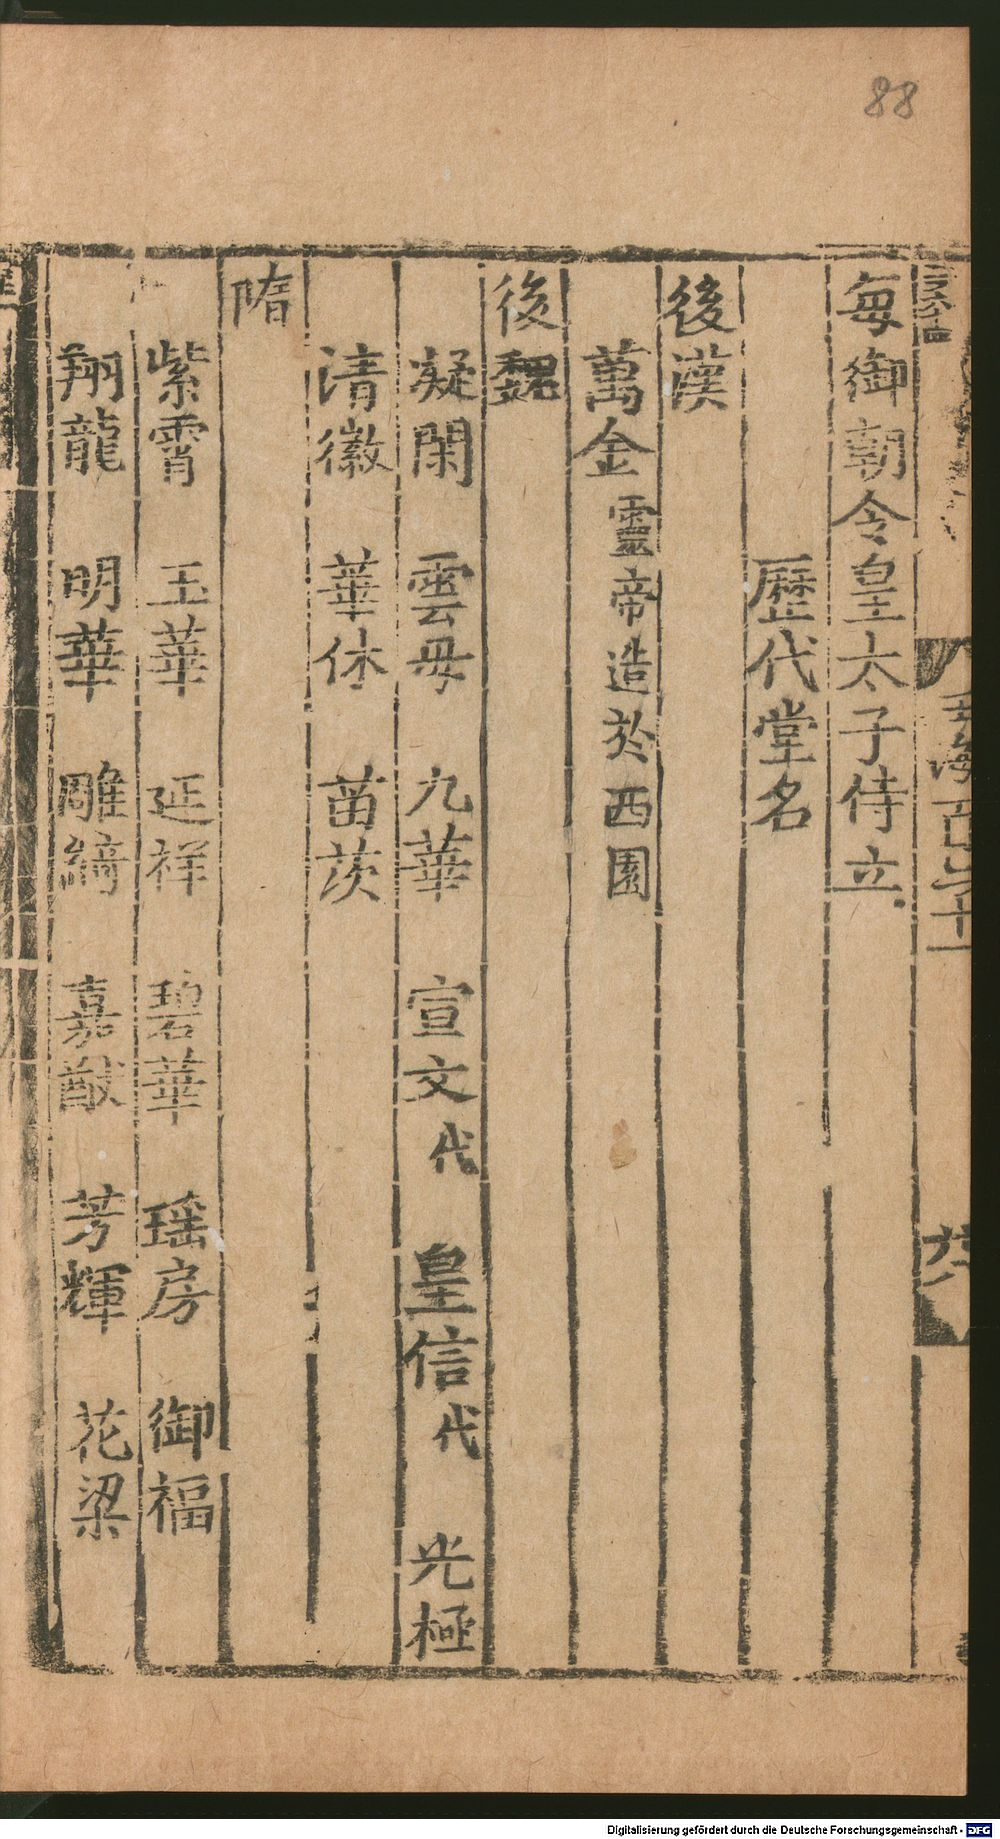 88
每御朝令皇太子侍立
歷代堂名
後漢
萬金靈帝造於西園
後魏
凝閑 雲母 九華 宣文代 皇信代 光極
清徽 華休 苗茨
隋
紫霄 玉華 延祥 碧華 瑶房 御福
翔龍 明華 雕綺 嘉猷 芳輝 花梁
Digitalisierung gefördert durch die Deutsche Forschungsgemeinschaft - DFG